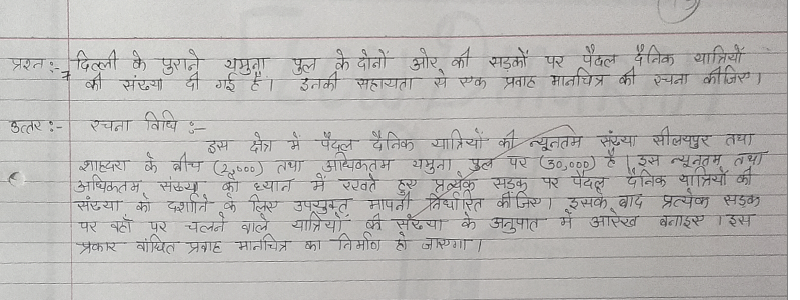 प्रश्न :- दिल्ली के पुराने यमुना पुल के दोनों ओर की सड़कों पर पैदल दैनिक यात्रियों
की संख्या दी गई है। इनकी सहायता से एक प्रवाह मानचित्र की रचना कीजिए।
उत्तर :- रचना विधि :-
इस क्षेत्र में पैदल दैनिक यात्रियों की न्यूनतम संख्या सीलमपुर तथा
शाहदरा के बीच तथा अधिकतम यमुना पुल पर (30,000) है। इस न्यूनतम तथा
अधिकतम संख्या को ध्यान में रखते हुए प्रत्येक सड़क पर पैदल दैनिक यात्रियों की
संख्या को दर्शाने के लिए उपयुक्त मापनी निर्धारित कीजिए। इसके बाद प्रत्येक सड़क
पर वहाँ पर चलने वाले यात्रियों की संख्या के अनुपात में आरेख बनाइए। इस
प्रकार वांछित प्रवाह मानचित्र का निर्माण हो जाएगा।